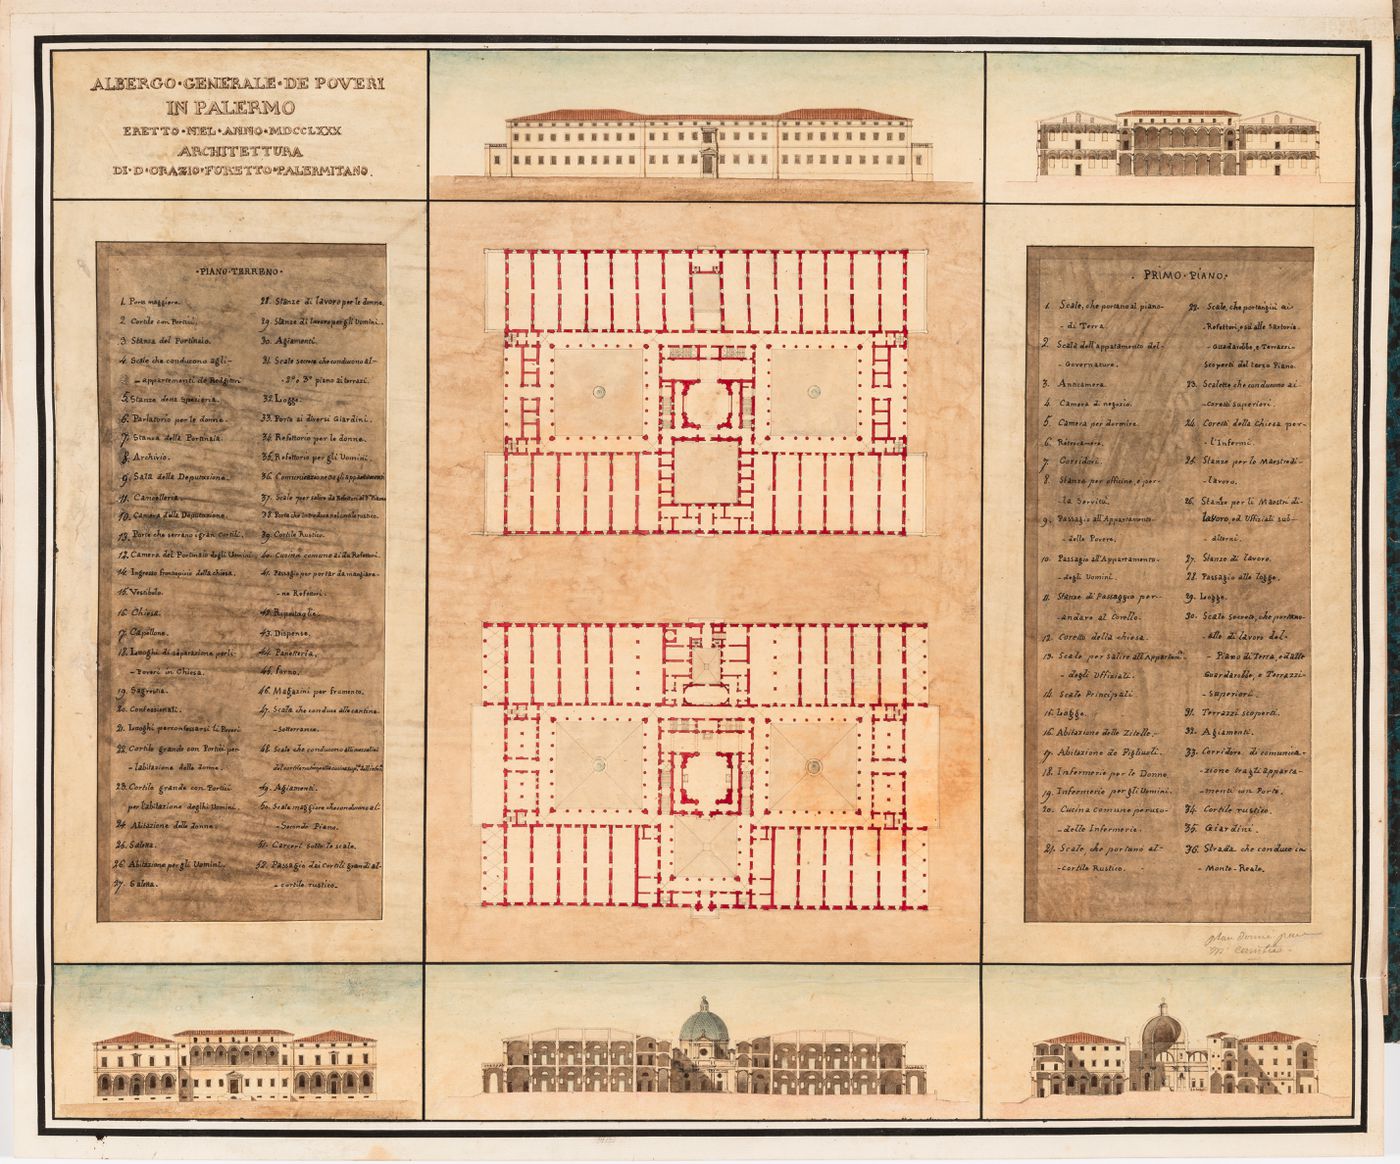 ALBERGO·GENERALE·DE POVERI
IN PALERMO
ERETTO·NEL·ANNO·MDCCLXXX
ARCHITETTURA
DI·D·ORAZIO·FURETTO·PALERMITANO.
·PIANO·TERRENO·
1. Porta maggiore.
2. Cortile con Portici.
3. Stanza del Portinaio.
4. Scale che conducono agli-
-appartamenti de Rettori
5. Stanze della Spezieria.
6. Parlatorio per le donne.
7. Stanza della Portinaia.
8. Archivio.
9. Sala della Deputazione.
11. Cancelleria.
10. Camera della Deputazione.
13. Porte che serrano i gran Cortili.
12. Camera del Portinaio degli Uomini.
14. Ingresso frontespicio della chiesa.
15. Vestibolo.
16. Chiesa.
17. Capellone.
18. Luoghi di separazione per li-
-Poveri in Chiesa.
19. Sagrestia.
20. Confessionali.
21. Luoghi per confessarsi li Poveri
22. Cortile grande con Portici per
-l'abitazione delle donne.
23. Cortile grande con Portici
per l'abitazione deghli Uomini.
24. Abitazione delle donne.
25. Saletta.
26. Abitazione per gli Uomini.
27. Saletta.
28. Stanze di lavoro per le donne.
29. Stanze di lavoro per gli Uomini.
30. Agiamenti.
31. Scale secrete che conducono al-
-2º o 3º piano ai terrazi.
32. Logge.
33. Porte ai diversi Giardini.
34. Refettorio per le donne.
35. Refettorio per gli Uomini.
36. Comunicazione tra gli appartamenti
37. Scale per salire da Refettori al Pº Piano
38. Porta che introduce nel cortile rustico.
39. Cortile Rustico.
40. Cucina comune ai da Refettori.
41. Passagio per portar da mangiare-
-ne Refettori.
42. Ripostaglie.
43. Dispense.
44. Panetteria.
45. Forno.
46. Magazini per frumento.
47. Scala che conduce alle cantine-
-Sotterranee.
48. Scale che conducono
49. Agiamenti.
50. Scala maggiore che conducono al-
-Secondo Piano.
51. Carceri sotto le scale.
52. Passagio dai Cortili grandi al-
-cortile rustico.
·PRIMO·PIANO·
1. Scale, che portano al piano-
-di Terra.
2. Scala dell'appatamento del-
-Governatore.
3. Anticamera.
4. Camera di negozio.
5. Camera per dormire.
6. Retrocamera.
7. Corridori.
8. Stanza per officine, e per-
-la Servitù.
9. Passagio all'Appartamento-
-delle Povere.
10. Passagio all'Appartamento-
-degli Uomini.
11. Stanze di Passaggio per-
-andare al Corello.
12. Coretti della chiesa.
13. Scale per salire all'Appartam:
-degli Uffiziali.
14. Scale Principali.
15. Logge.
16. Abitazione delle Zitelle.-
17. Abitazione de Figliuoli.
18. Infermerie per le Donne.
19. Infermerie per gli Uomini.
20. Cucina comune per uso-
-delle Infermerie.
21. Scale, che portano al-
-cortile Rustico.
22. Scale, che portano giù ai
-Refettori, e sù alle Sartorie-
-Guardarobbe, e Terrazzi-
Scoperti del terzo Piano.
23. Scalette che conducono ai-
-coretti superiori.
24. Coretti della Chiesa per-
-l'Infermi.
25. Stanze per le Maestre di-
-lavoro.
26. Stanze per li Maestri di-
lavoro, ed Uffiziali sub-
-alterni.
27. Stanze di lavoro.
28. Passagio alle logge.
29. Logge.
30. Scale secrete, che portano-
-alle di lavoro del-
-Piano di Terra, ed alle
Guardarobbe, e Terrazzi-
-Superiori.
31. Terrazzi scoperti.
32. Agiamenti.
33. Corridore di comunica-
-zione tra gli apparta-
-menti con Porte.
34. Cortile rustico.
35. Giardini.
36. Strada che conduce in
-Monte-Reale.
plan donné par
Mr